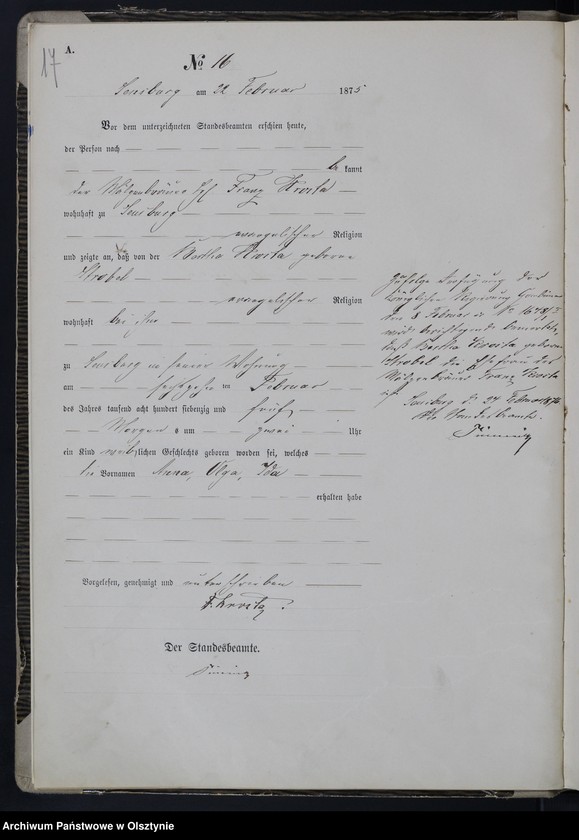 17
A.
No 16
Sensburg am 22 Februar 1875
Vor dem unterzeichneten Standesbeamten erschien heute,
der Person nach
be kannt
der Franz
wohnhaft zu Sensburg
evangelischer Religion
und zeigte an, daß von der Bertha geborene
Strobel
evangelischer Religion
wohnhaft bei ihm
zu Sensburg in seiner Wohnung
am im Februar
des Jahres tausend acht hundert siebenzig und fünf
Morgens um zwei Uhr
ein Kind weiblichen Geschlechts geboren worden sei, welches
die Vornamen Anna, Olga, Ida
erhalten habe
Vorgelesen, genehmigt und unterschrieben
Der Standesbeamte.
Zufolge Verfügung der
Königlichen Regierung
den 8 Februar
wird berichtigend bemerkt,
daß Bertha geborene
Strobel die Ehefrau des
Franz
ist
Sensburg d. 24 Februar
Der Standesbeamte.
Archiwum Państwowe w Olsztynie